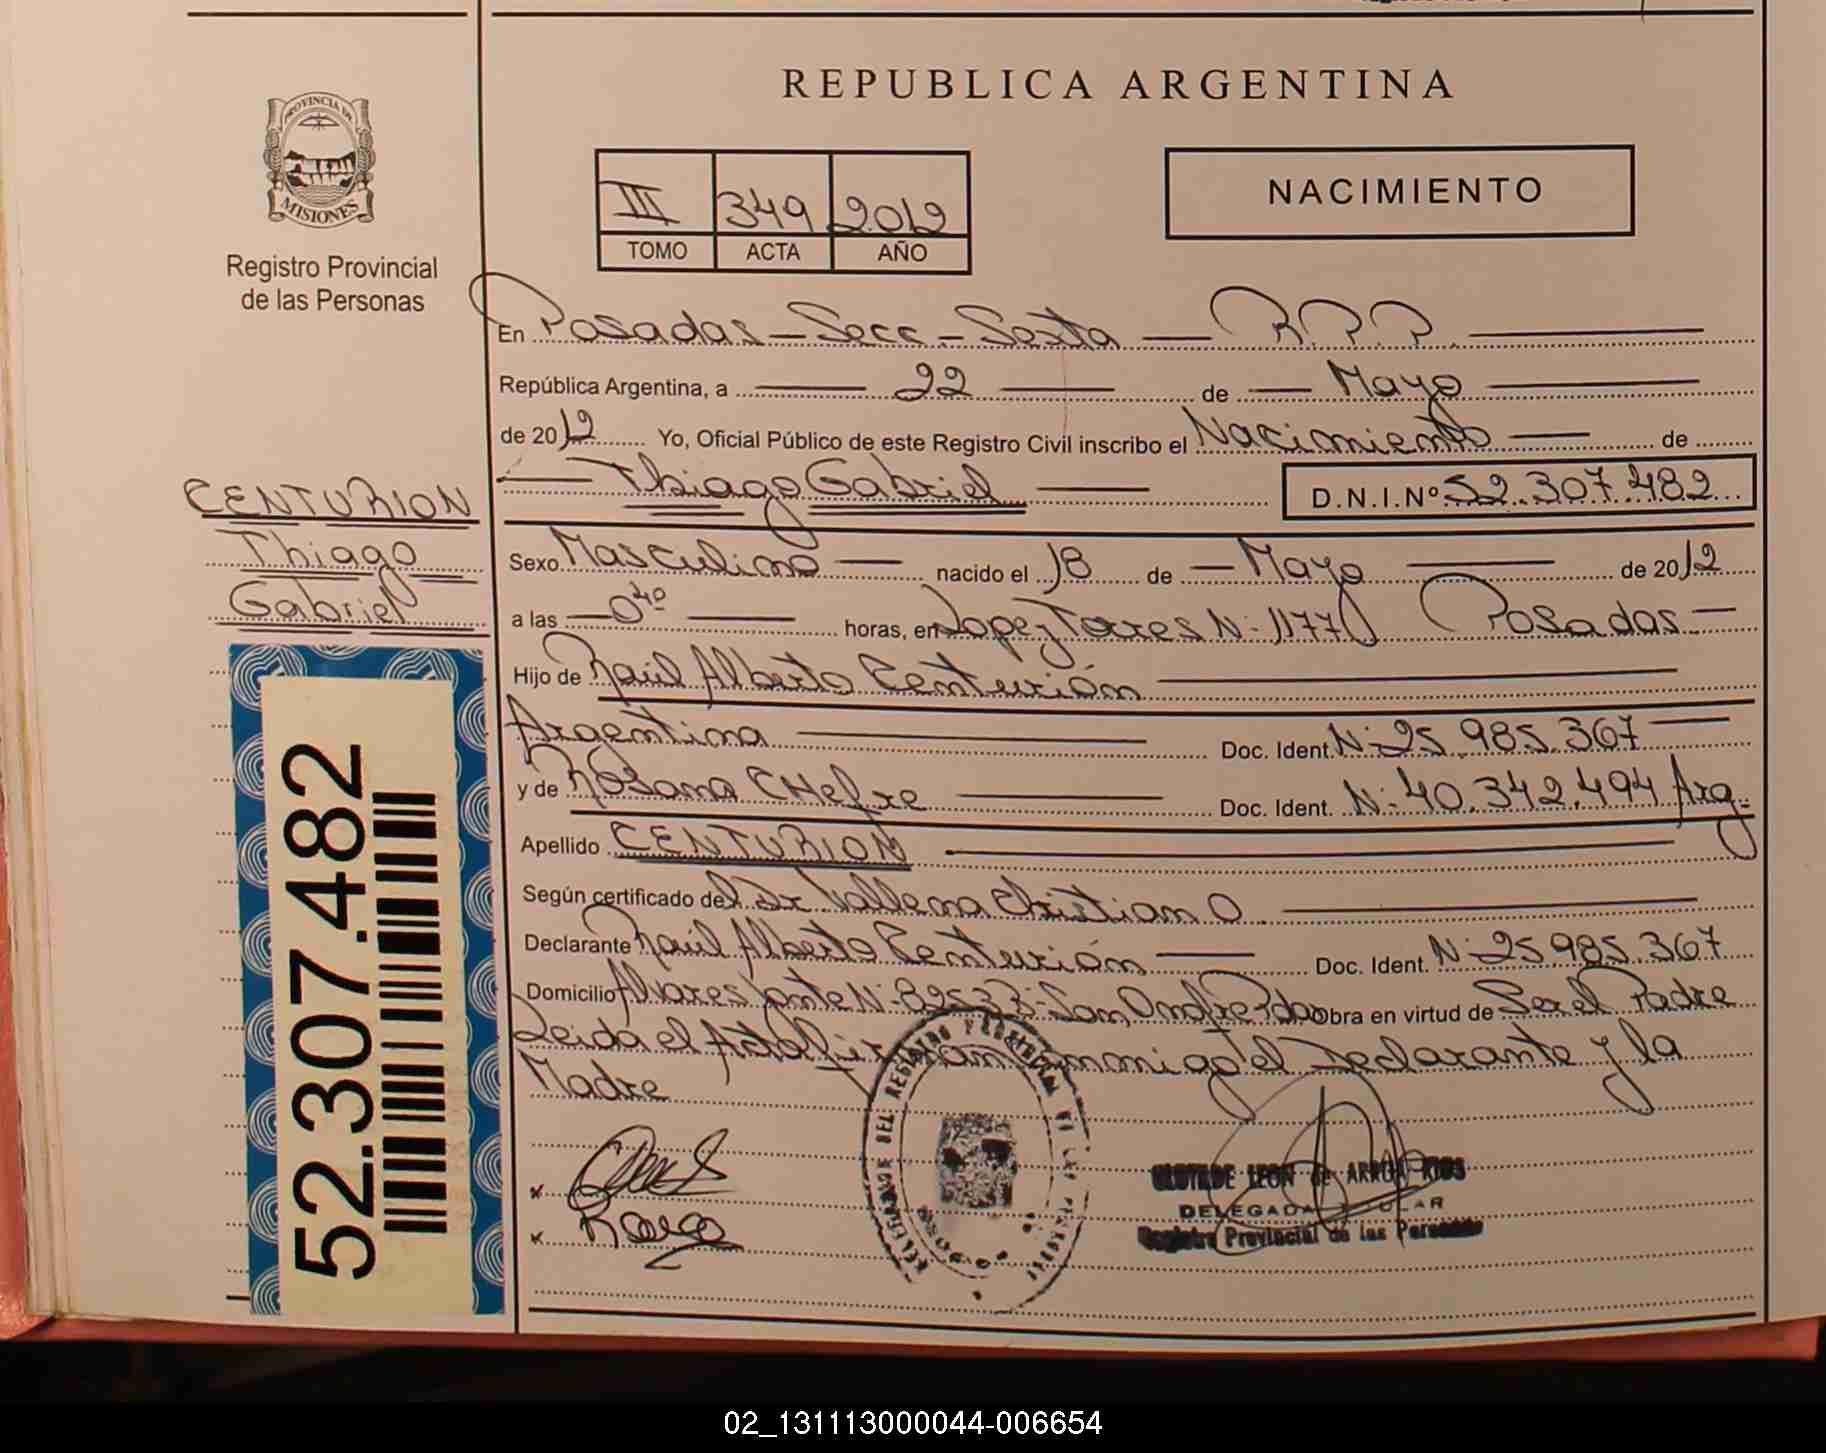 REPUBLICA ARGENTINA
PROVINCIA DE
MISIONES
Registro Provincial
de las Personas
III 349 2012
TOMO ACTA AÑO
NACIMIENTO
En Posadas - Secc - Sexta R.P.P.
República Argentina, a 22 de Mayo
de 2012 Yo, Oficial Público de este Registro Civil inscribo el Nacimiento de
Thiago Gabriel D.N.I.Nº 52.307.482
CENTURION
Thiago
Gabriel
Sexo Masculino nacido el 18 de Mayo de 2012
a las 04º horas, en Lopez Torres Nº 1177 Posadas
Hijo de Raúl Alberto Centurión
Argentina Doc. Ident. Nº 25.985.367
y de Rosana CHefre Doc. Ident. Nº 40.342.494 Arg.
Apellido CENTURION
Según certificado del Dr Vallena Christian O
Declarante Raúl Alberto Centurión Doc. Ident. Nº 25985.367
Domicilio Alvares Jonte Nº 8253 San Onofre Pdas Obra en virtud de Ser el Padre
Leida el Acta firman conmigo el Declarante y la
Madre
52.307.482
DELEGACION DEL REGISTRO PROVINCIAL DE LAS PERSONAS
CLOTILDE LEON de ARRUA RIOS
DELEGADA TITULAR
Registro Provincial de las Personas
02_131113000044-006654